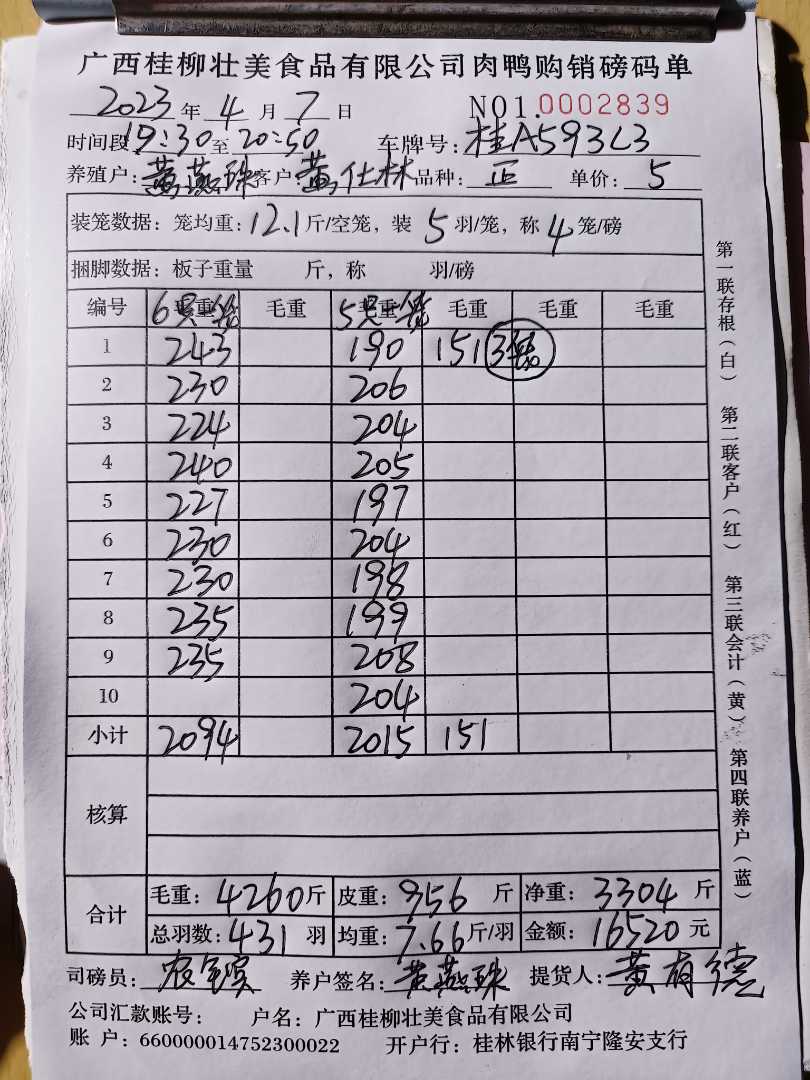 广西桂柳壮美食品有限公司肉鸭购销磅码单
2023年4月7日 NO1.0002839
时间段19:30至20:50 车牌号:桂A593L3
养殖户:黄燕珠 客户:黄仕林 品种:正 单价:5
装笼数据:笼均重:12.1斤/空笼,装5羽/笼,称4笼/磅
捆脚数据:板子重量 斤,称 羽/磅
编号 6只一笼 毛重 毛重 5只一笼 毛重 毛重 毛重 毛重
1 243 190 151 3笼
2 230 206
3 224 204
4 240 205
5 227 197
6 230 204
7 230 198
8 235 199
9 235 208
10 204
小计 2094 2015 151
核算
合计 毛重:4260斤 皮重:956斤 净重:3304斤
总羽数:431羽 均重:7.66斤/羽 金额:16520元
司磅员: 养户签名:黄燕珠 提货人:黄有德
公司汇款账号: 户名:广西桂柳壮美食品有限公司
账 户:660000014752300022 开户行:桂林银行南宁隆安支行
第一联存根(白) 第二联客户(红) 第三联会计(黄) 第四联养户(蓝)